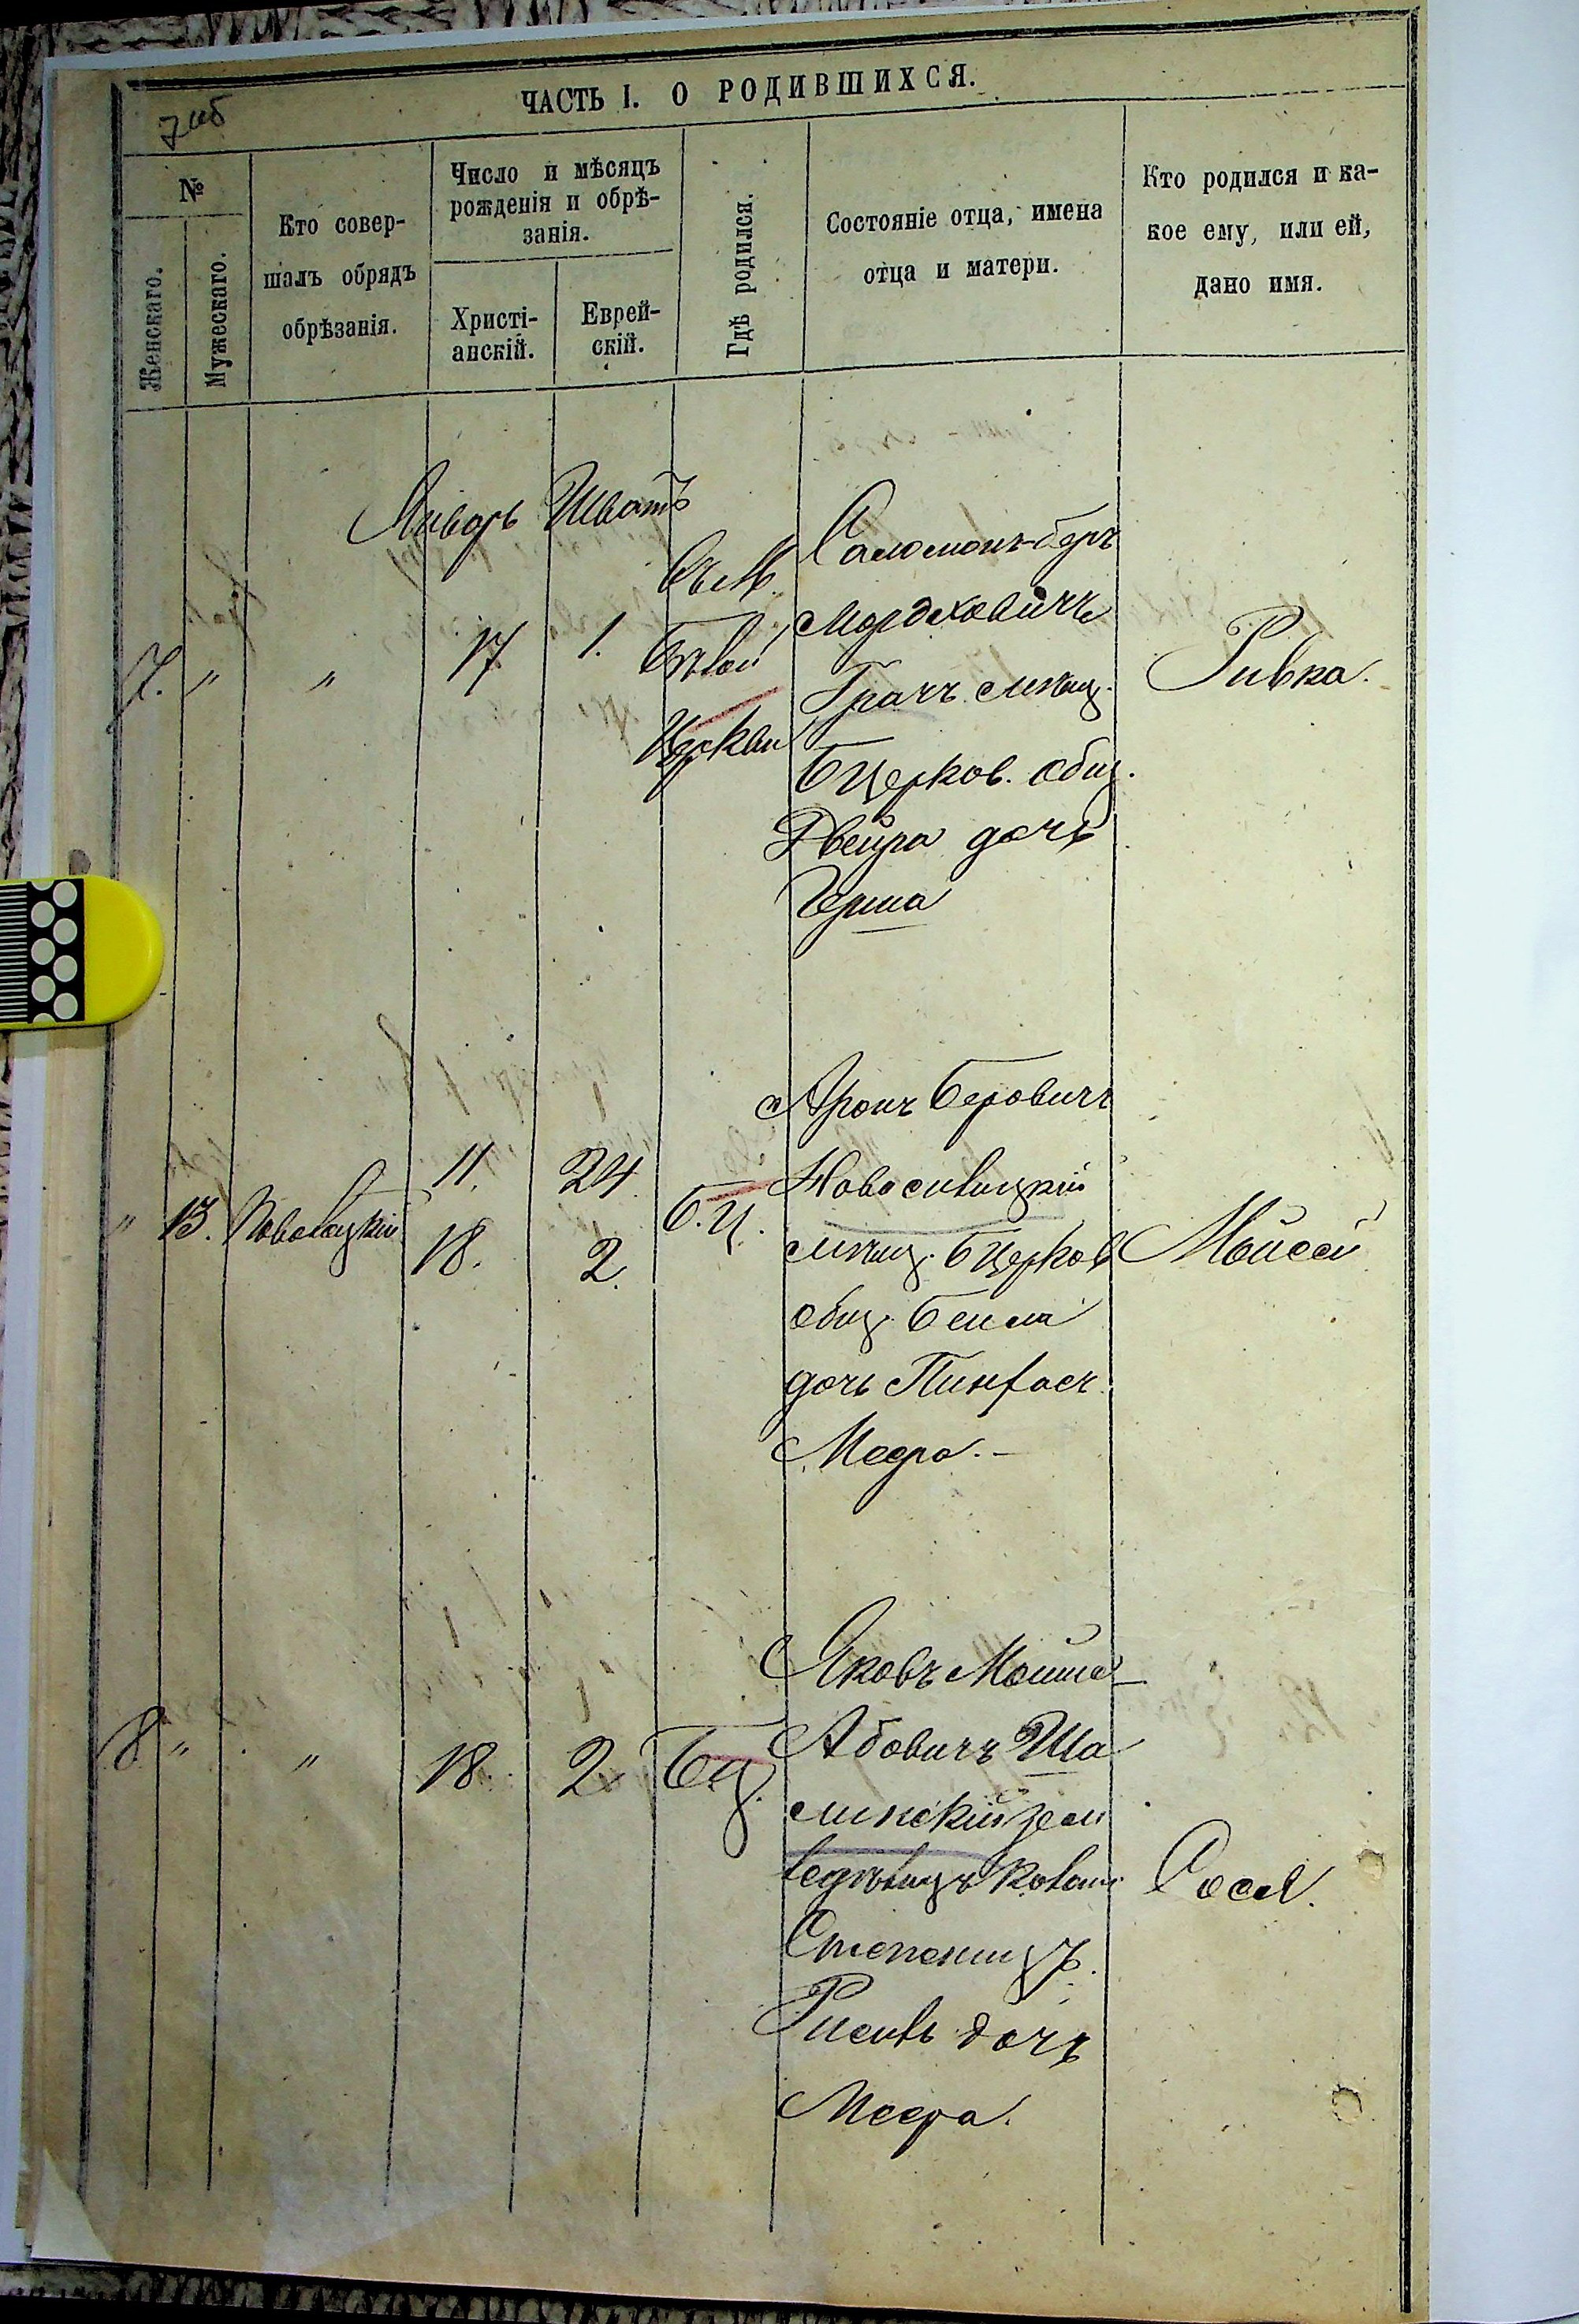 ЧАСТЬ I. О РОДИВШИХСЯ.
№
Женскаго.
Мужескаго.
Кто совер-
шалъ обрядъ
обрѣзанія.
Число и мѣсяцъ
рожденія и обрѣ-
занія.
Христі-
анскій.
Еврей-
скій.
Гдѣ родился.
Состояніе отца, имена
отца и матери.
Кто родился и ка-
кое ему, или ей,
дано имя.
Январь Шватъ
7. " " 17 1.
Въ М.
Бѣлой
Церкви
Саломонъ-беръ
Мордковичъ
Грачъ мѣщ.
БЦерков. общ.
Двейра дочь
Герша
Ривка.
" 13.
11. 24.
18. 2.
Б.Ц.
Аронъ Беровичъ
Новосивицкій
мѣщ. БЦерков
общ. Бейла
дочь Пинхасъ
Меера.-
Мойсей
8 " " 18. 2 БЦ.
Яковъ Мошко-
Абовичъ Ша
Степаницъ.
дочь
Меера.
Сося.